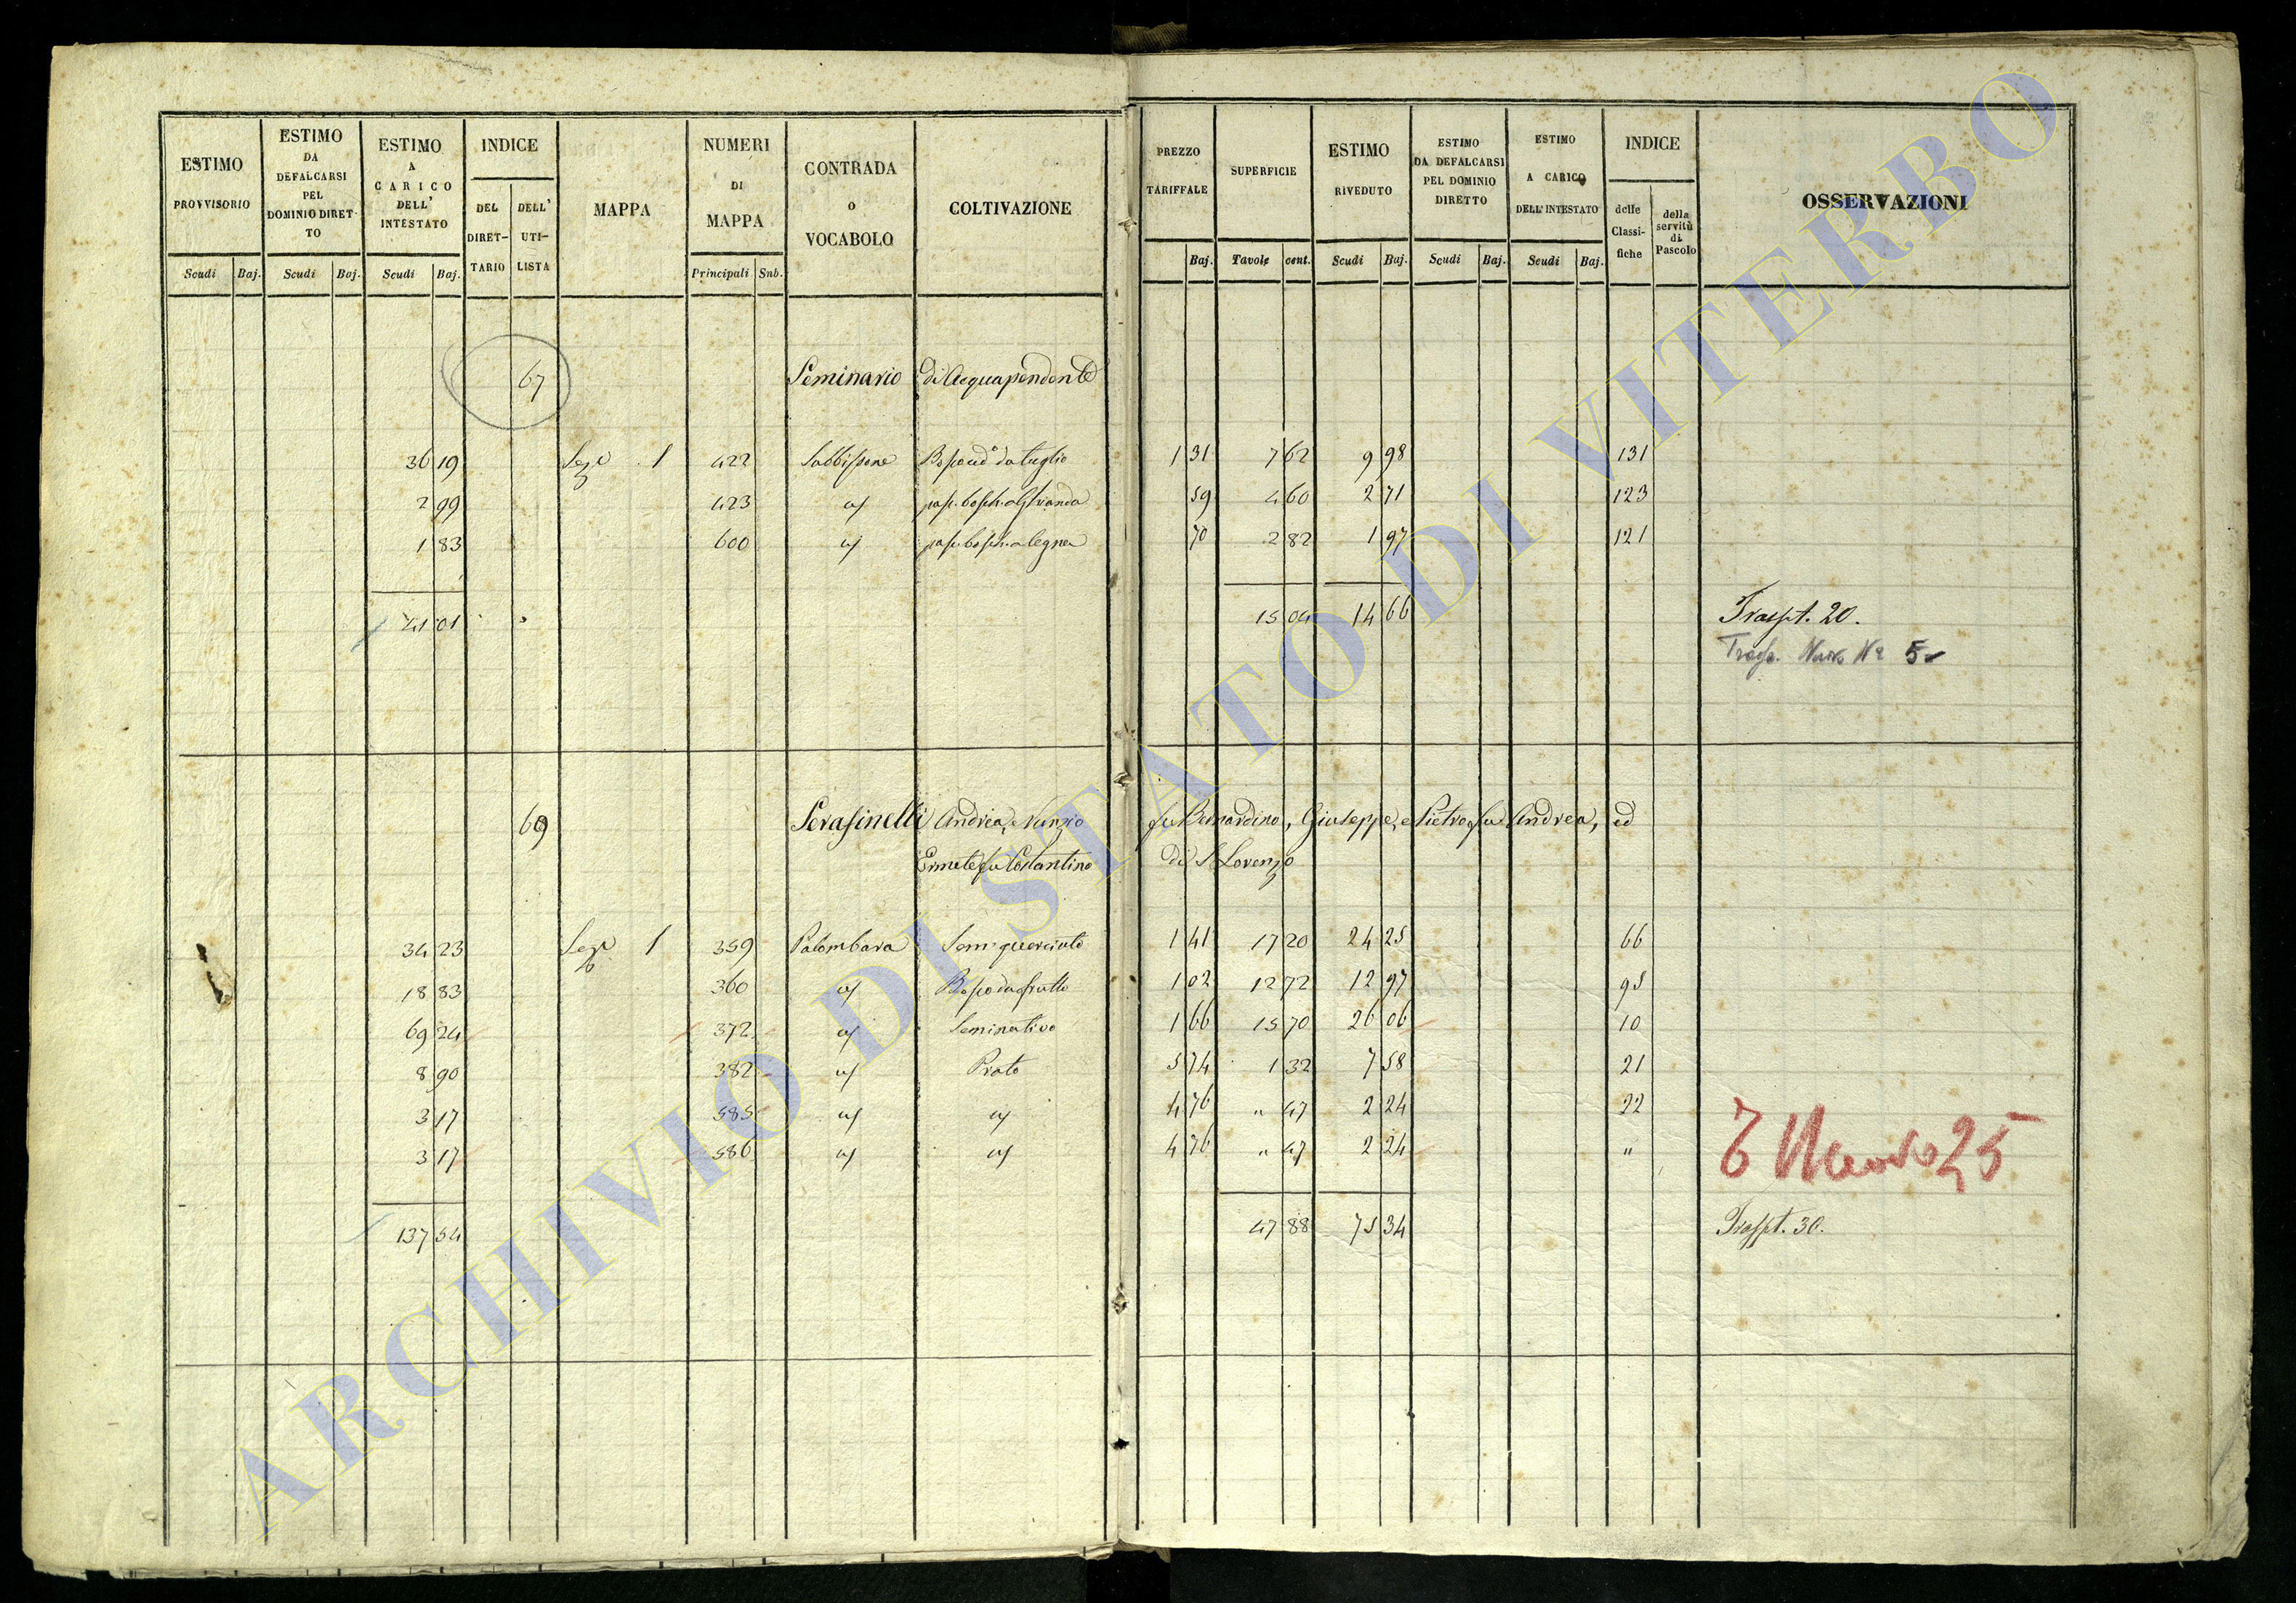 ESTIMO PROVVISORIO
Scudi Baj.
ESTIMO DA DEFALCARSI PEL DOMINIO DIRET-TO
Scudi Baj.
ESTIMO A CARICO DELL' INTESTATO
Scudi Baj.
INDICE
DEL DIRET-TARIO
DELL' UTI-LISTA
MAPPA
NUMERI DI MAPPA
Principali Sub.
CONTRADA O VOCABOLO
COLTIVAZIONE
PREZZO TARIFFALE
Baj.
SUPERFICIE
Tavole cent.
ESTIMO RIVEDUTO
Scudi Baj.
ESTIMO DA DEFALCARSI PEL DOMINIO DIRETTO
Scudi Baj.
ESTIMO A CARICO DELL'INTESTATO
Scudi Baj.
INDICE
delle Classi-fiche
della servitù di Pascolo
OSSERVAZIONI
67 Seminario di Acquapendente
36 19 Sez. 1 422 1 31 7 62 9 98 131
2 99 423 59 4 60 2 71 123
1 83 600 70 2 82 1 97 121
41 01 15 04 14 66 Traspt. 20.
Trasp. Nuovo Nº 5
69 Serafinelli Andrea, e Nunzio fu Bernardino, Giuseppe, e Pietro fu Andrea, ed
Ermete fu Costantino di S. Lorenzo
34 23 Sez. 1 359 Palombara Sem. querciato 1 41 17 20 24 25 66
18 83 360 Bosco da frutto 1 02 12 72 12 97 95
69 24 372 Seminativo 1 66 15 70 26 06 10
8 90 382 Prato 5 74 1 32 7 58 21
3 17 585 4 76 " 47 2 24 22
3 17 586 4 76 " 47 2 24 "
25
137 54 47 88 75 34 Traspt. 30.
ARCHIVIO DI STATO DI VITERBO